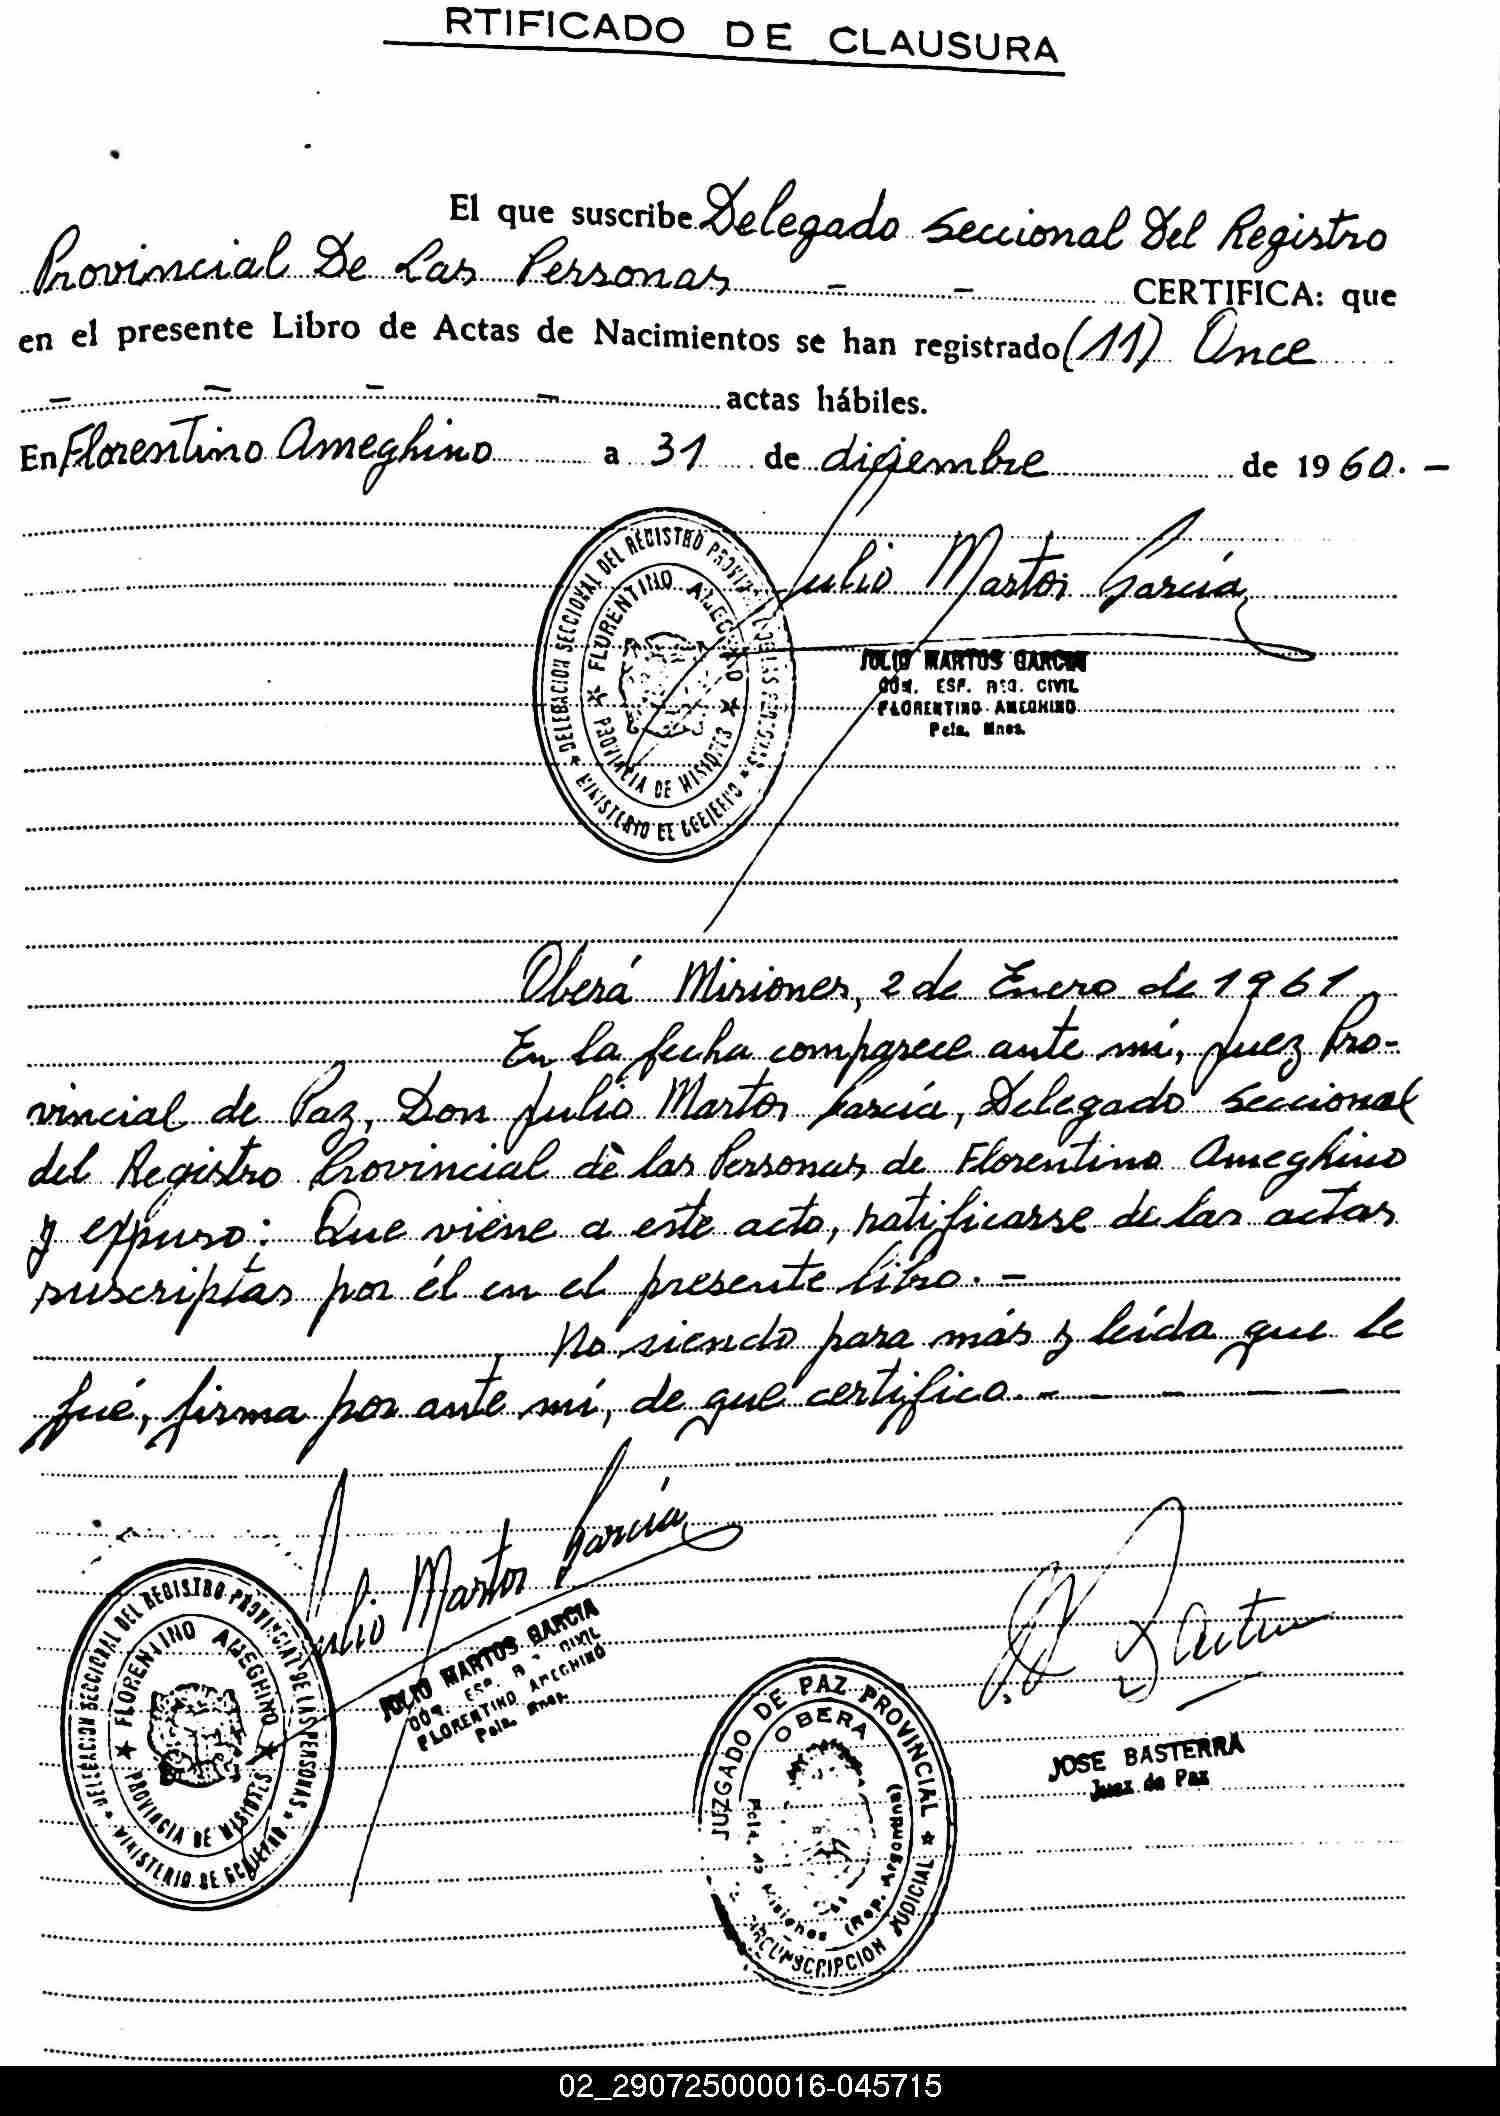 RTIFICADO DE CLAUSURA
El que suscribe Delegado Seccional Del Registro
Provincial De Las Personas - - CERTIFICA: que
en el presente Libro de Actas de Nacimientos se han registrado (11) Once
- - - - actas hábiles.
En Florentino Ameghino a 31 de diciembre de 1960.-
Julio Martos García
JULIO MARTOS GARCIA
ESP. CIVIL
FLORENTINO AMEGHINO
Pcia. Mnes.
DELEGACION SECCIONAL DEL REGISTRO PROVINCIAL DE LAS PERSONAS
FLORENTINO AMEGHINO
PROVINCIA DE MISIONES
MINISTERIO DE GOBIERNO
Oberá Misiones, 2 de Enero de 1961
En la fecha comparece ante mí, Juez Pro-
vincial de Paz, Don Julio Martos García, Delegado Seccional
del Registro Provincial de las Personas de Florentino Ameghino
y expuso: Que viene a este acto, ratificarse de las actas
suscriptas por él en el presente libro.-
No siendo para más y leída que le
fué, firma por ante mí, de que certifico.- - - - -
Julio Martos García
JULIO MARTOS GARCIA
ESP. CIVIL
FLORENTINO AMEGHINO
Pcia. Mnes.
DELEGACION SECCIONAL DEL REGISTRO PROVINCIAL DE LAS PERSONAS
FLORENTINO AMEGHINO
PROVINCIA DE MISIONES
MINISTERIO DE GOBIERNO
JOSE BASTERRA
Juez de Paz
JUZGADO DE PAZ PROVINCIAL
OBERA
Pcia. de Misiones (Rep. Argentina)
CIRCUNSCRIPCION JUDICIAL
02_290725000016-045715